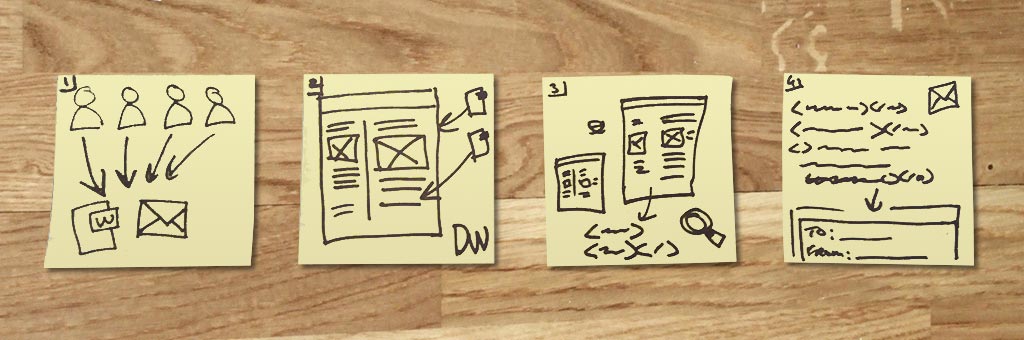 1
W
2
DW
3
4
To:
From: